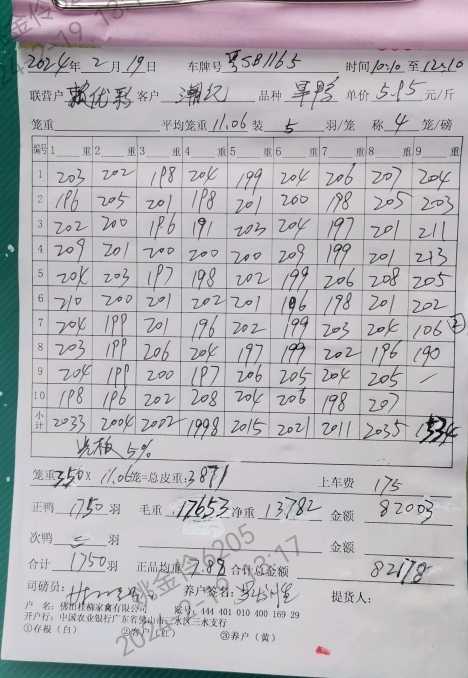 2024年2月19日 车牌号 粤SB1165 时间10:10至12:10
联营户 赖优彩 客户 潮记 品种 旱鸭 单价 5.95元/斤
笼重 平均笼重11.06装 5 羽/笼 称 4 笼/磅
编号 1 重 2 重 3 重 4 重 5 重 6 重 7 重 8 重 9 重
1 203 202 198 204 199 204 206 207 204
2 196 205 201 198 201 200 198 205 203
3 202 200 196 191 203 204 197 201 211
4 209 201 200 200 200 209 199 201 213
5 204 203 197 198 202 199 206 208 205
6 210 200 201 202 201 196 198 201 202
7 204 199 201 196 202 199 203 204 106 ②
8 203 199 206 204 197 199 202 196 190
9 204 199 200 197 206 205 204 205 —
10 198 196 202 208 204 206 198 207
小计 2033 2004 2002 1998 2015 2021 2011 2035 1534
5%
笼重350×11.06笼=总皮重:3871 上车费 175
正鸭 1750 羽 毛重 17653 净重 13782 金额 82003
次鸭 羽 金额
合计 1750 羽 正品均重 7.88 合计总金额 82178
司磅员: 养户签名: 提货人:
户 名: 佛山桂柳家禽有限公司 账号: 444 401 010 400 169 29
开户行: 中国农业银行广东省佛山市三水区三水支行
①存根(白) ②客户(红) ③养户(黄)